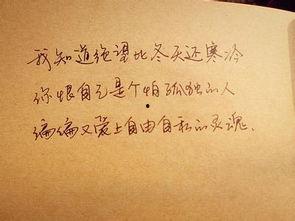 我知道绝望比冬天还寒冷
你恨自己是个怕孤独的人
偏偏又爱上自由自私的灵魂.